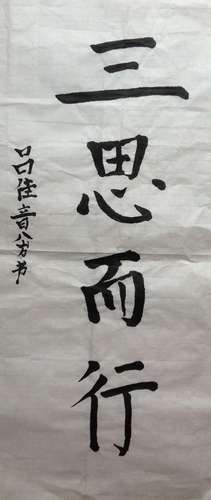 三思而行
吕佳音八岁书